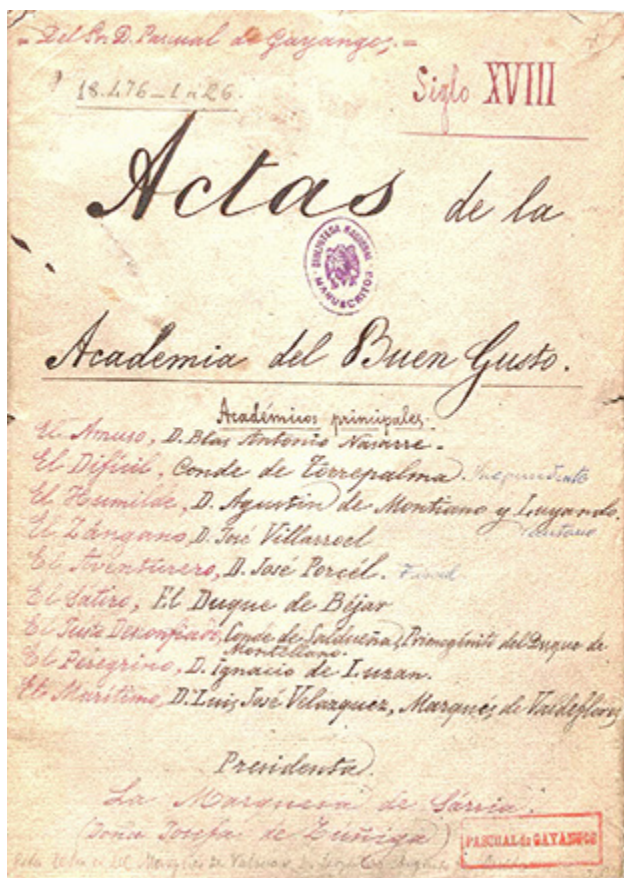 = Del Sr. D. Pascual de Gayangos. =
18.476-1 a 26.
Siglo XVIII
Actas de la
BIBLIOTECA NACIONAL
MANUSCRITOS
Academia del Buen Gusto.
Académicos principales.
El Amuso, D. Blas Antonio Nasarre.
El Difícil, Conde de Torrepalma. Vicepresidente
El Humilde, D. Agustin de Montiano y Luyando.
El Zángano, D. José Villarroel
El Aventurero, D. José Porcél.
El Sátiro, El Duque de Béjar
El Justo Desconfiado, Conde de Saldueña, Primogénito del Duque de
Montellano.
El Peregrino, D. Ignacio de Luzan.
El Marítimo, D. Luis José Velazquez, Marqués de Valdeflores
Presidenta.
La Marquesa de Sárria.
(Doña Josefa de Zúñiga)
PASCUAL de GAYANGOS